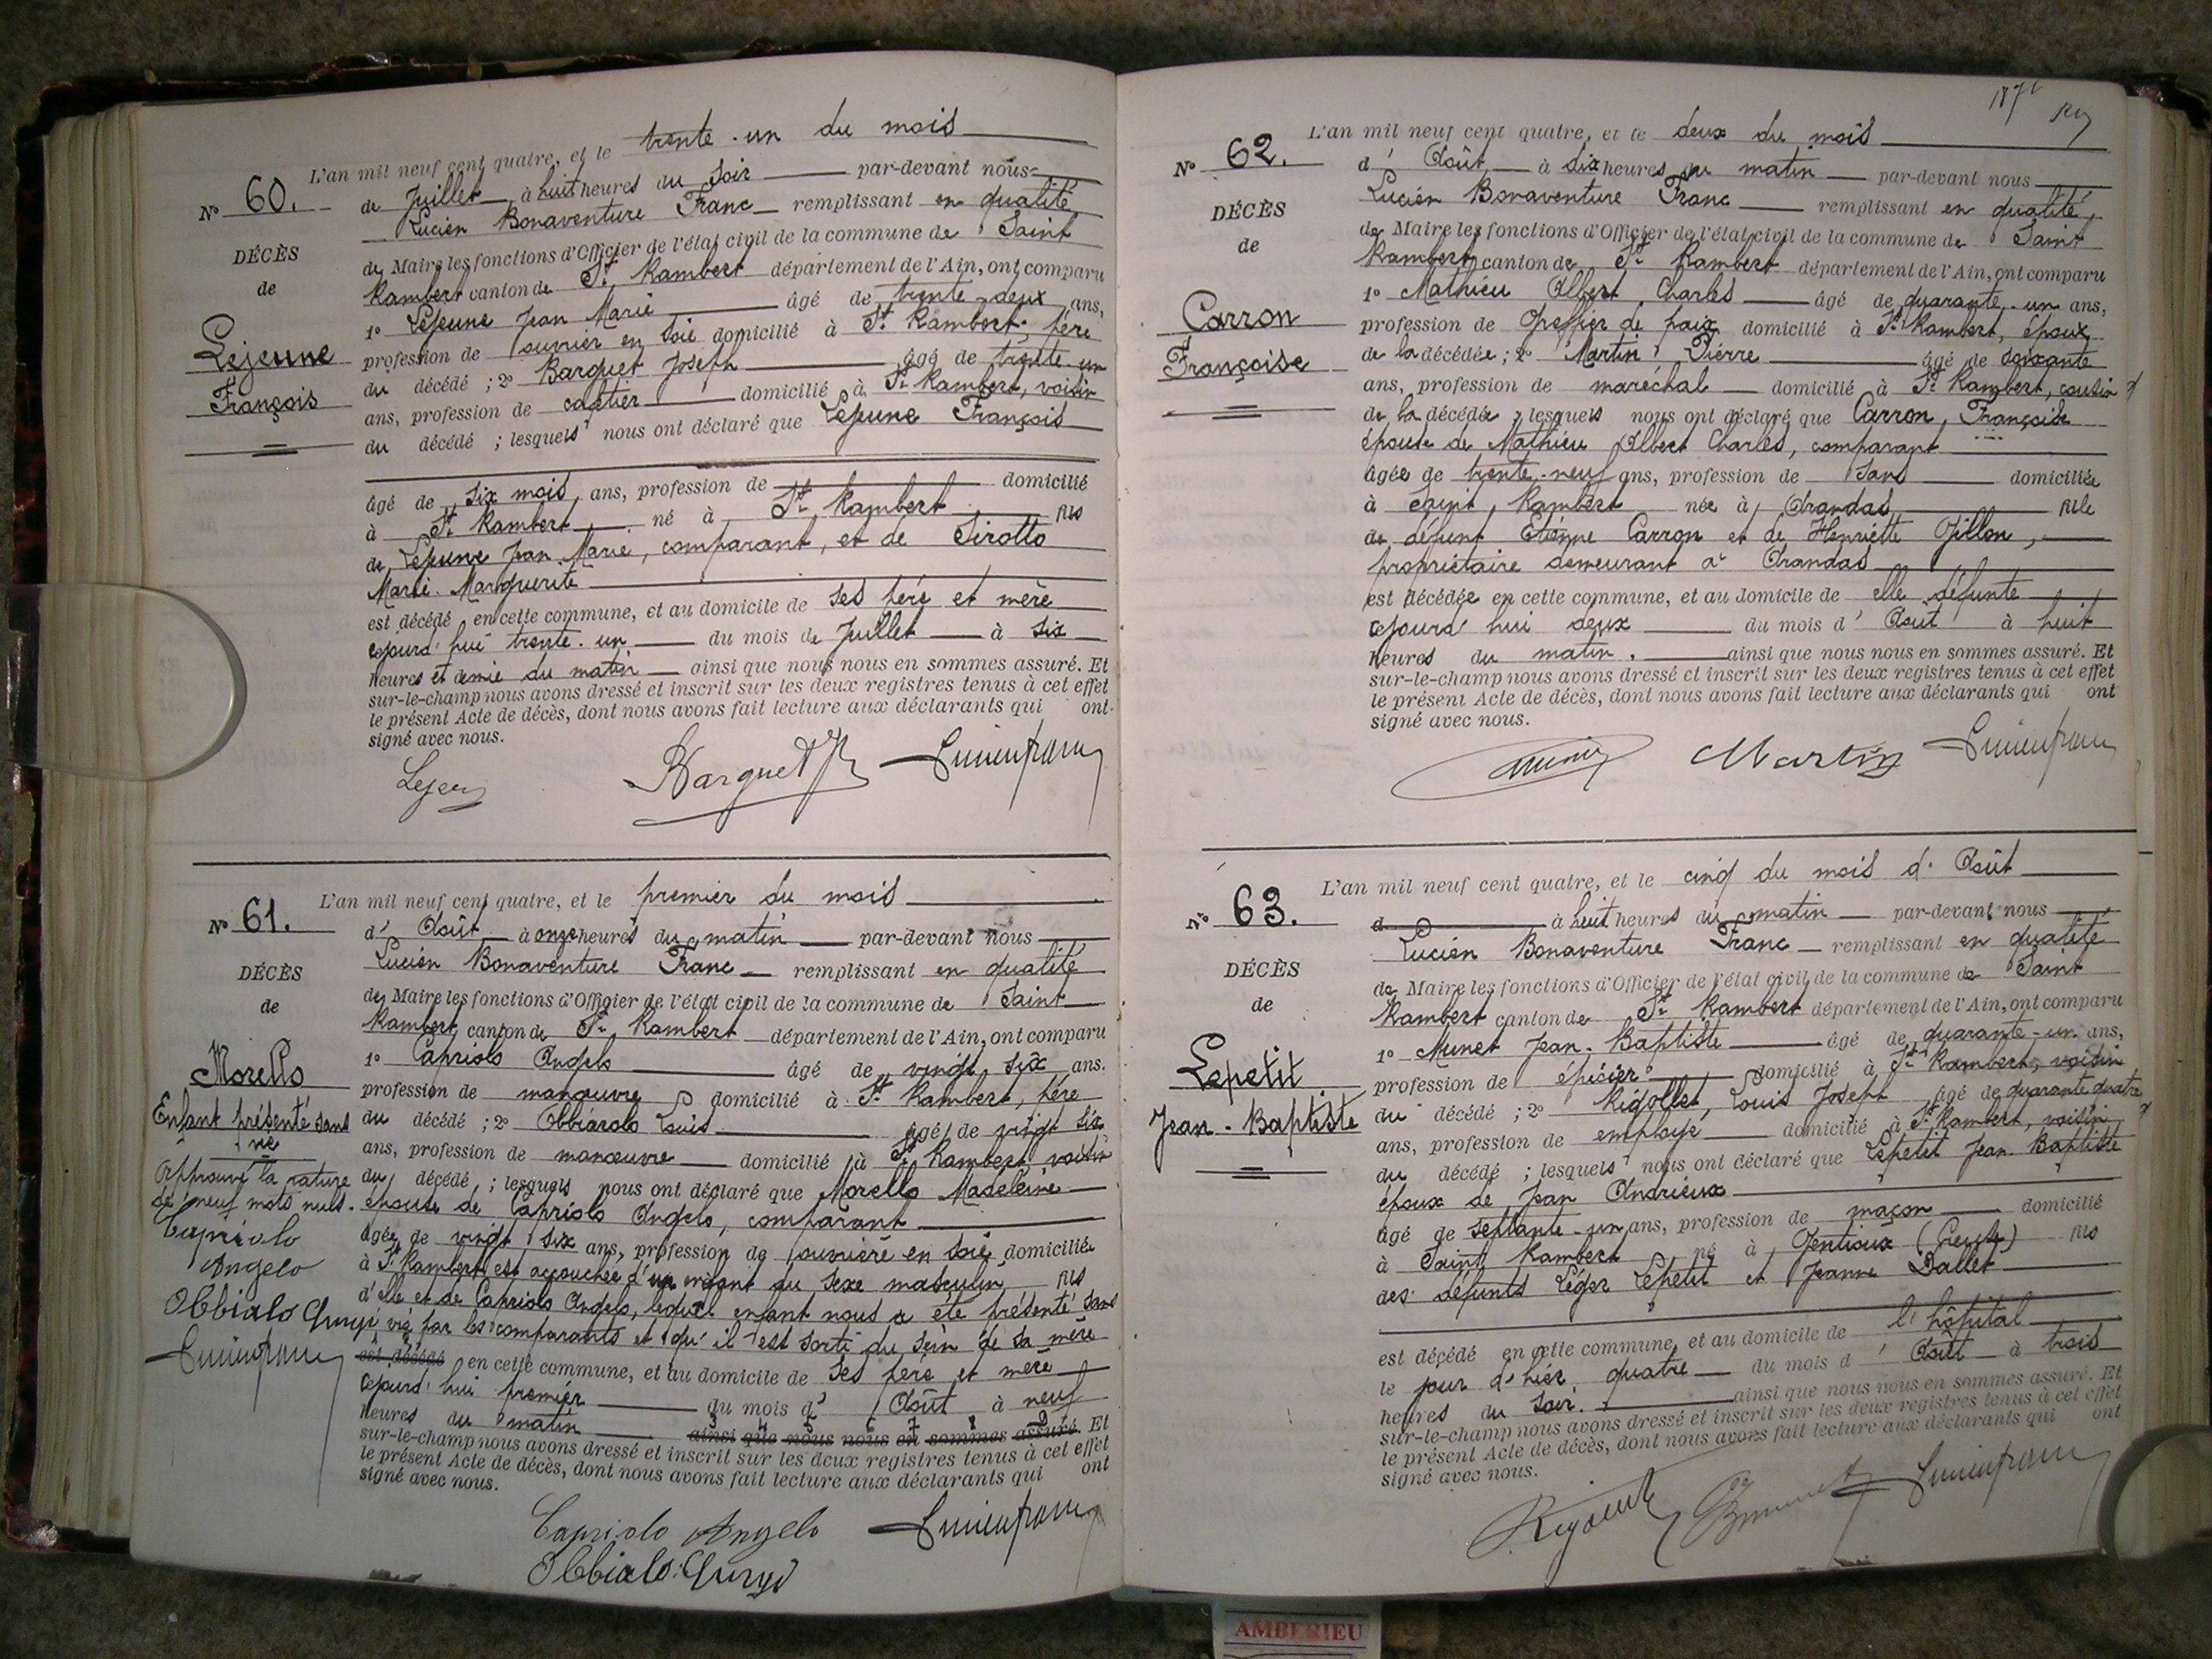 L'an mil neuf cent quatre, et le trente-un du mois
N° 60.
de Juillet à huit heures du soir par-devant nous
Lucien Bonaventure Franc remplissant en qualité
DÉCÈS
de Maire les fonctions d'Officier de l'état civil de la commune de Saint
de
Rambert canton de St Rambert département de l'Ain, ont comparu
1° Lejeune Jean Marie âgé de trente-deux ans,
Lejeune
profession de ouvrier en soie domicilié à St Rambert, père
du décédé ; 2° Barquet Joseph âgé de trente-un
François
ans, profession de domicilié à St Rambert, voisin
du décédé ; lesquels nous ont déclaré que Lejeune François
âgé de six mois ans, profession de domicilié
à St Rambert né à St Rambert fils
de Lejeune Jean Marie, comparant, et de Sirotto
Marie-Marguerite
est décédé en cette commune, et au domicile de ses père et mère
cejourd'hui trente-un du mois de Juillet à six
heures et demie du matin ainsi que nous nous en sommes assuré. Et
sur-le-champ nous avons dressé et inscrit sur les deux registres tenus à cet effet
le présent Acte de décès, dont nous avons fait lecture aux déclarants qui ont
signé avec nous.
Barquet
L'an mil neuf cent quatre, et le premier du mois
N° 61.
d'Août à onze heures du matin par-devant nous
Lucien Bonaventure Franc remplissant en qualité
DÉCÈS
de Maire les fonctions d'Officier de l'état civil de la commune de Saint
de
Rambert canton de St Rambert département de l'Ain, ont comparu
1° Capriolo Angelo âgé de vingt six ans.
Morello
profession de manœuvre domicilié à St Rambert, père
Enfant présenté sans
vie
du décédé ; 2° Obbiarolo Louis âgé de vingt six
ans, profession de manœuvre domicilié à St Rambert, voisin
Approuvé la rature
de neuf mots nuls.
du décédé ; lesquels nous ont déclaré que Morello Madeleine
épouse de Capriolo Angelo, comparant
Capriolo
Angelo
âgée de vingt six ans, profession de ouvrière en soie domiciliée
à St Rambert est accouchée d'un enfant du sexe masculin fils
d'elle et de Capriolo Angelo, lequel enfant nous a été présenté sans
Obbialo
vie par les comparants et qu'il est sorti du sein de sa mère
est décédé en cette commune, et au domicile de ses père et mère
cejourd'hui premier du mois d'Août à neuf
heures du matin ainsi que nous nous en sommes assuré. Et
sur-le-champ nous avons dressé et inscrit sur les deux registres tenus à cet effet
le présent Acte de décès, dont nous avons fait lecture aux déclarants qui ont
signé avec nous.
Capriolo Angelo
Obbialo
L'an mil neuf cent quatre, et le deux du mois
N° 62.
d'Août à dix heures du matin par-devant nous
Lucien Bonaventure Franc remplissant en qualité
DÉCÈS
de Maire les fonctions d'Officier de l'état civil de la commune de Saint
de
Rambert canton de St Rambert département de l'Ain, ont comparu
1° Mathieu Albert Charles âgé de quarante-un ans,
Carron
profession de Greffier de paix domicilié à St Rambert, époux
de la décédée ; 2° Martin Pierre âgé de soixante
Françoise
ans, profession de maréchal domicilié à St Rambert, cousin
de la décédée, lesquels nous ont déclaré que Carron, Françoise
épouse de Mathieu Albert Charles, comparant
âgée de trente-neuf ans, profession de sans domiciliée
à Saint Rambert née à Arandas fille
de défunt Etienne Carron et de Henriette Gillon,
propriétaire demeurant à Arandas
est décédée en cette commune, et au domicile de elle défunte
cejourd'hui deux du mois d'Août à huit
heures du matin. ainsi que nous nous en sommes assuré. Et
sur-le-champ nous avons dressé et inscrit sur les deux registres tenus à cet effet
le présent Acte de décès, dont nous avons fait lecture aux déclarants qui ont
signé avec nous.
Martin
L'an mil neuf cent quatre, et le cinq du mois d'Août
N° 63.
d à huit heures du matin par-devant nous
Lucien Bonaventure Franc remplissant en qualité
DÉCÈS
de Maire les fonctions d'Officier de l'état civil de la commune de Saint
de
Rambert canton de St Rambert département de l'Ain, ont comparu
1° Munet Jean-Baptiste âgé de quarante-un ans,
Lepetit
profession de épicier domicilié à St Rambert, voisin
du décédé ; 2° Rigollet, Louis Joseph âgé de quarante quatre
Jean-Baptiste
ans, profession de employé domicilié à St Rambert, voisin
du décédé ; lesquels nous ont déclaré que Lepetit Jean Baptiste
époux de Jean Andrieux
âgé de septante-un ans, profession de maçon domicilié
à Saint Rambert né à Gentioux (Creuse) fils
des défunts Léger Lepetit et Jeanne Dallet
est décédé en cette commune, et au domicile de l'hôpital
le jour d'hier, quatre du mois d'Août à trois
heures du soir. ainsi que nous nous en sommes assuré. Et
sur-le-champ nous avons dressé et inscrit sur les deux registres tenus à cet effet
le présent Acte de décès, dont nous avons fait lecture aux déclarants qui ont
signé avec nous.
AMBERIEU